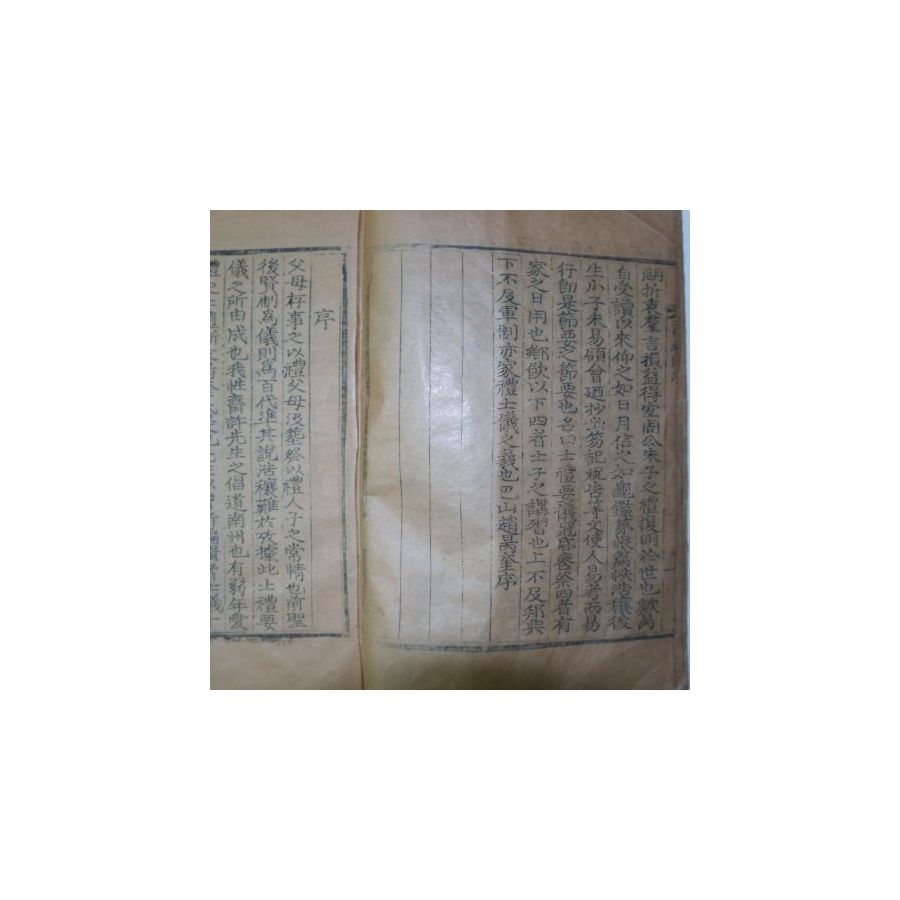 湖折衷羣言損益得宜周公朱子之禮復明於世也歟
自受讀以來仰之如日月信之如龜鑑第
生小子未易領會廼抄笏記祝告等文使人易考而易
行卽是節要之節要也名曰士禮要儀冠昏喪祭四者有
家之日用也鄕飮以下四者士子之講習也上不及邦典
下不及軍制亦家禮士儀之義也巴山趙昺奎序
序
父母存事之以禮父母沒葬祭以禮人子之常情也前聖
後賢制爲儀則爲百代準其說浩穰難於攷據此士禮要
儀之所由成也我性齋許先生之倡道南州也有弱年愛